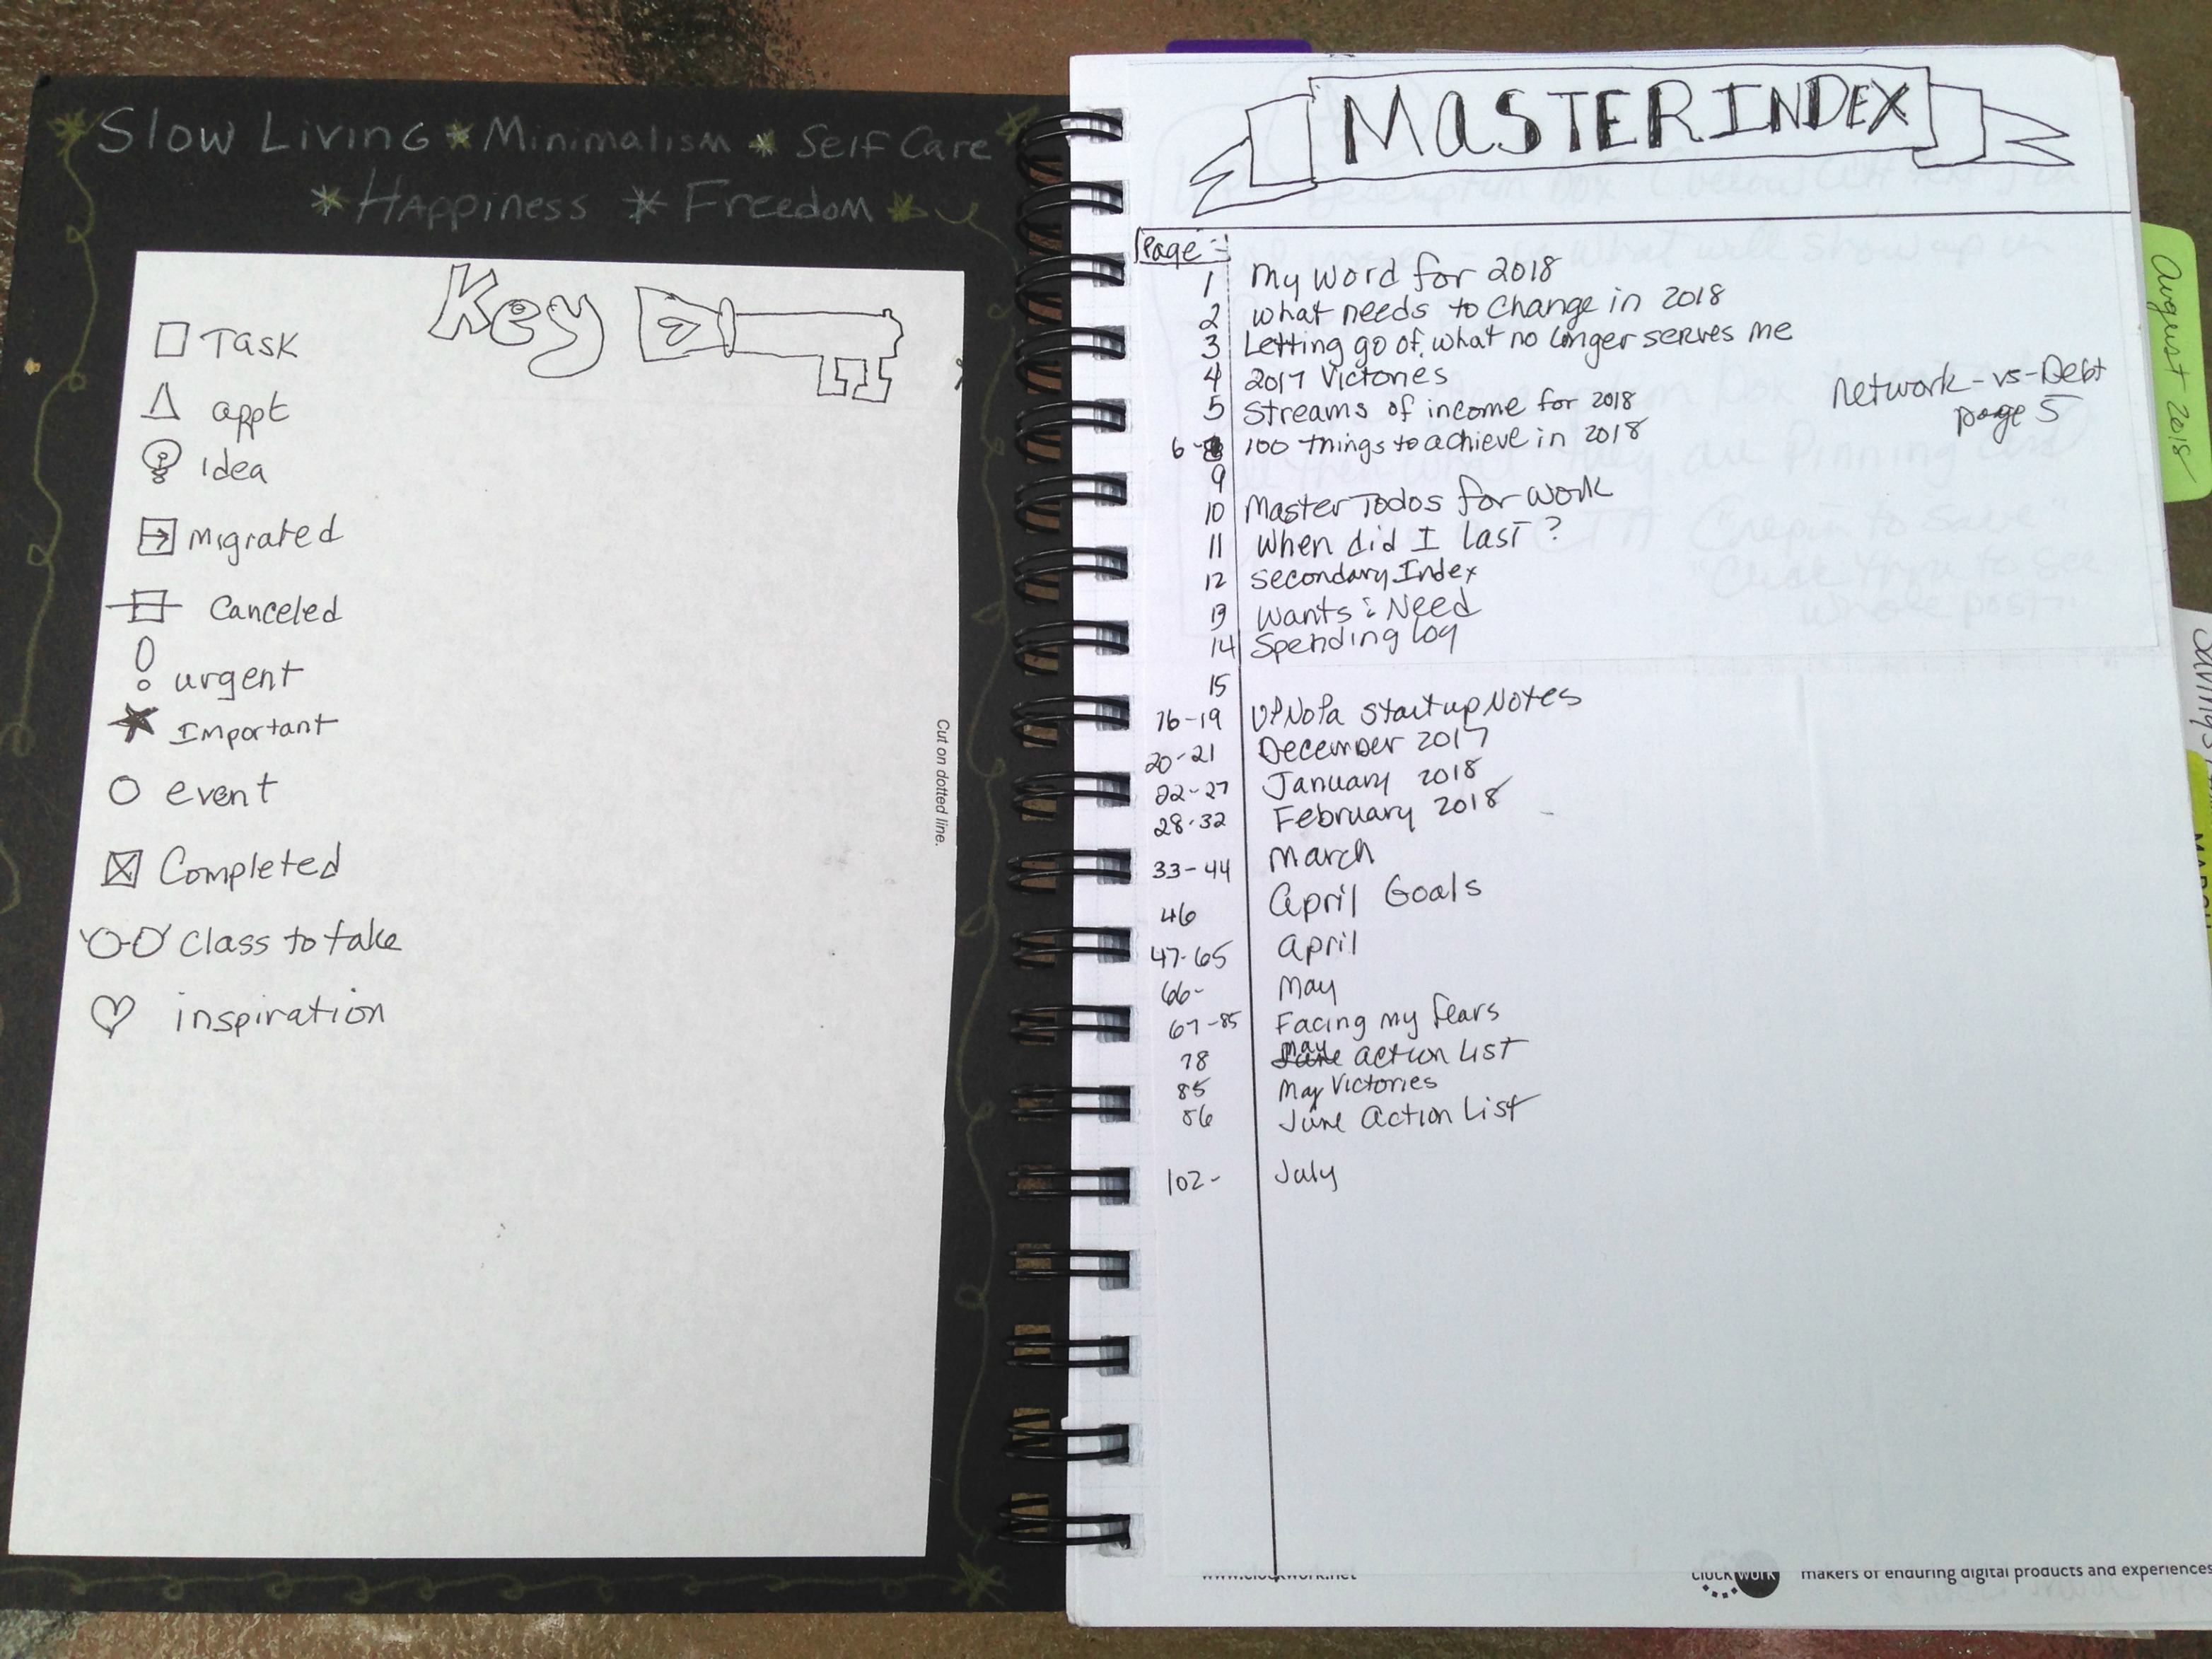 Slow Living * Minimalism * Self Care
* Happiness * Freedom *
Key
Task
appt
Idea
Migrated
Canceled
urgent
Important
event
Completed
Class to take
inspiration
Cut on dotted line.
MASTER INDEX
Page
1 My Word for 2018
2 What needs to Change in 2018
3 Letting go of what no longer serves me
4 2017 Victories
5 Streams of income for 2018
Network-vs-Debt
page 5
6-8 100 things to achieve in 2018
9
10 Master Todos for work
11 When did I last?
12 Secondary Index
13 Wants & Need
14 Spending log
15
16-19 startup Notes
20-21 December 2017
22-27 January 2018
28-32 February 2018
33-44 March
46 April Goals
47-65 April
66- May
67-85 Facing my fears
78 May action List
85 May Victories
86 June action List
102- July
August 2018
Savings
MARCH
www.clockwork.net
clockwork makers of enduring digital products and experiences